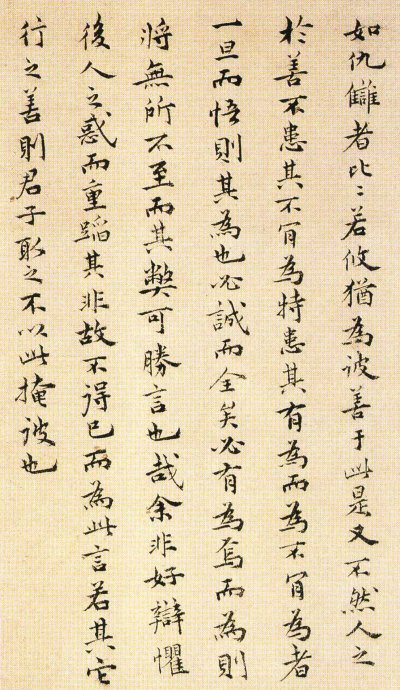 如仇讎者比比若攸猶為彼善于此是又不然人之
於善不患其不肯為特患其有為而為不肯為者
一旦而悟則其為也必誠而全矣必有為焉而為則
將無所不至而其弊可勝言也哉余非好辯懼
後人之惑而重蹈其非故不得已而為此言若其它
行之善則君子取之不以此掩彼也